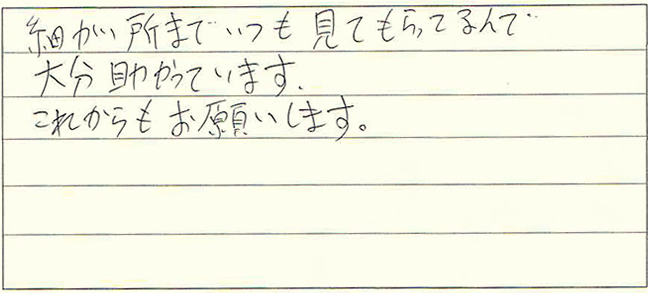 細かい所までいつも見てもらってるんで
大分助かっています.
これからもお願いします。